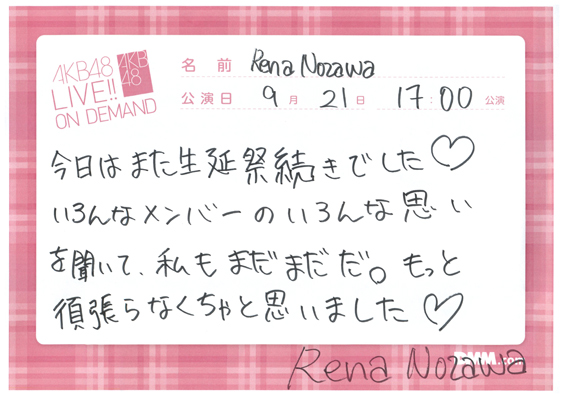 AKB48
LIVE!!
ON DEMAND
AKB
48
名前 Rena Nozawa
公演日 9月 21日 17:00 公演
今日はまた生誕祭続きでした♡
いろんなメンバーのいろんな思い
を聞いて、私もまだまだだ。もっと
頑張らなくちゃと思いました♡
Rena Nozawa
DMM.com